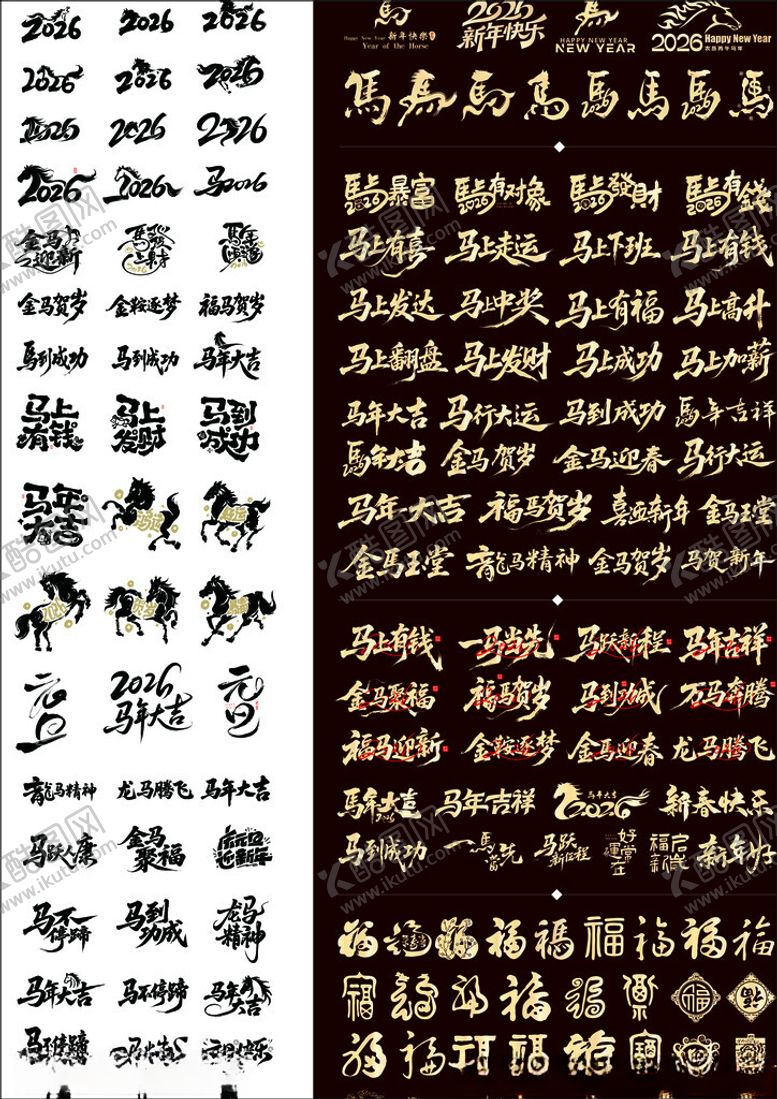 2026 2026 2026
2026 2026 2026
2026 2026 2026
2026 2026 马2026
金马迎新
金马贺岁 金鞍逐梦 福马贺岁
馬到成功 马到成功 马年大吉
马上有钱 马上发财 马到成功
马年大吉
元旦 2026 马年大吉 元旦
龍马精神 龙马腾飞 马年大吉
金马聚福 庆元旦迎新年
马不停蹄 马到功成 龙马精神
马年大吉 马不停蹄 马年大吉
马不停蹄
Happy New Year 新年快樂
Year of the Horse
2026 新年快乐
HAPPY NEW YEAR
NEW YEAR
2026 Happy New Year
农历丙午马年
馬 馬 馬 馬 馬 馬 馬 馬
馬上暴富 2026 馬上有对象 2026 馬上發財 2026 馬上有錢 2026
马上有喜 马上走运 马上下班 马上有钱
马上发达 马上中奖 马上有福 马上高升
马上翻盘 马上发财 马上成功 马上加薪
马年大吉 马行大运 马到成功 馬年吉祥
馬年大吉 2026 金马贺岁 金马迎春 马行大运
马年大吉 福馬贺岁 喜迎新年 金马玉堂
金马玉堂 龍马精神 金马贺岁 马贺新年
马上有钱 一马当先 马跃新程 马年吉祥
金马聚福 福马贺岁 马到功成 万马奔腾
福马迎新 金鞍逐梦 金马迎春 龙马腾飞
馬年大吉 2026 马年吉祥 马年大吉 2026 新春快乐
马到成功 一馬當先 马跃新征程 好運常在 福启新岁 新年好
福 福 福 福 福 福 福 福 福
福 福 福 福 福 福 福
福 福 福 福
酷图网
www.ikutu.com